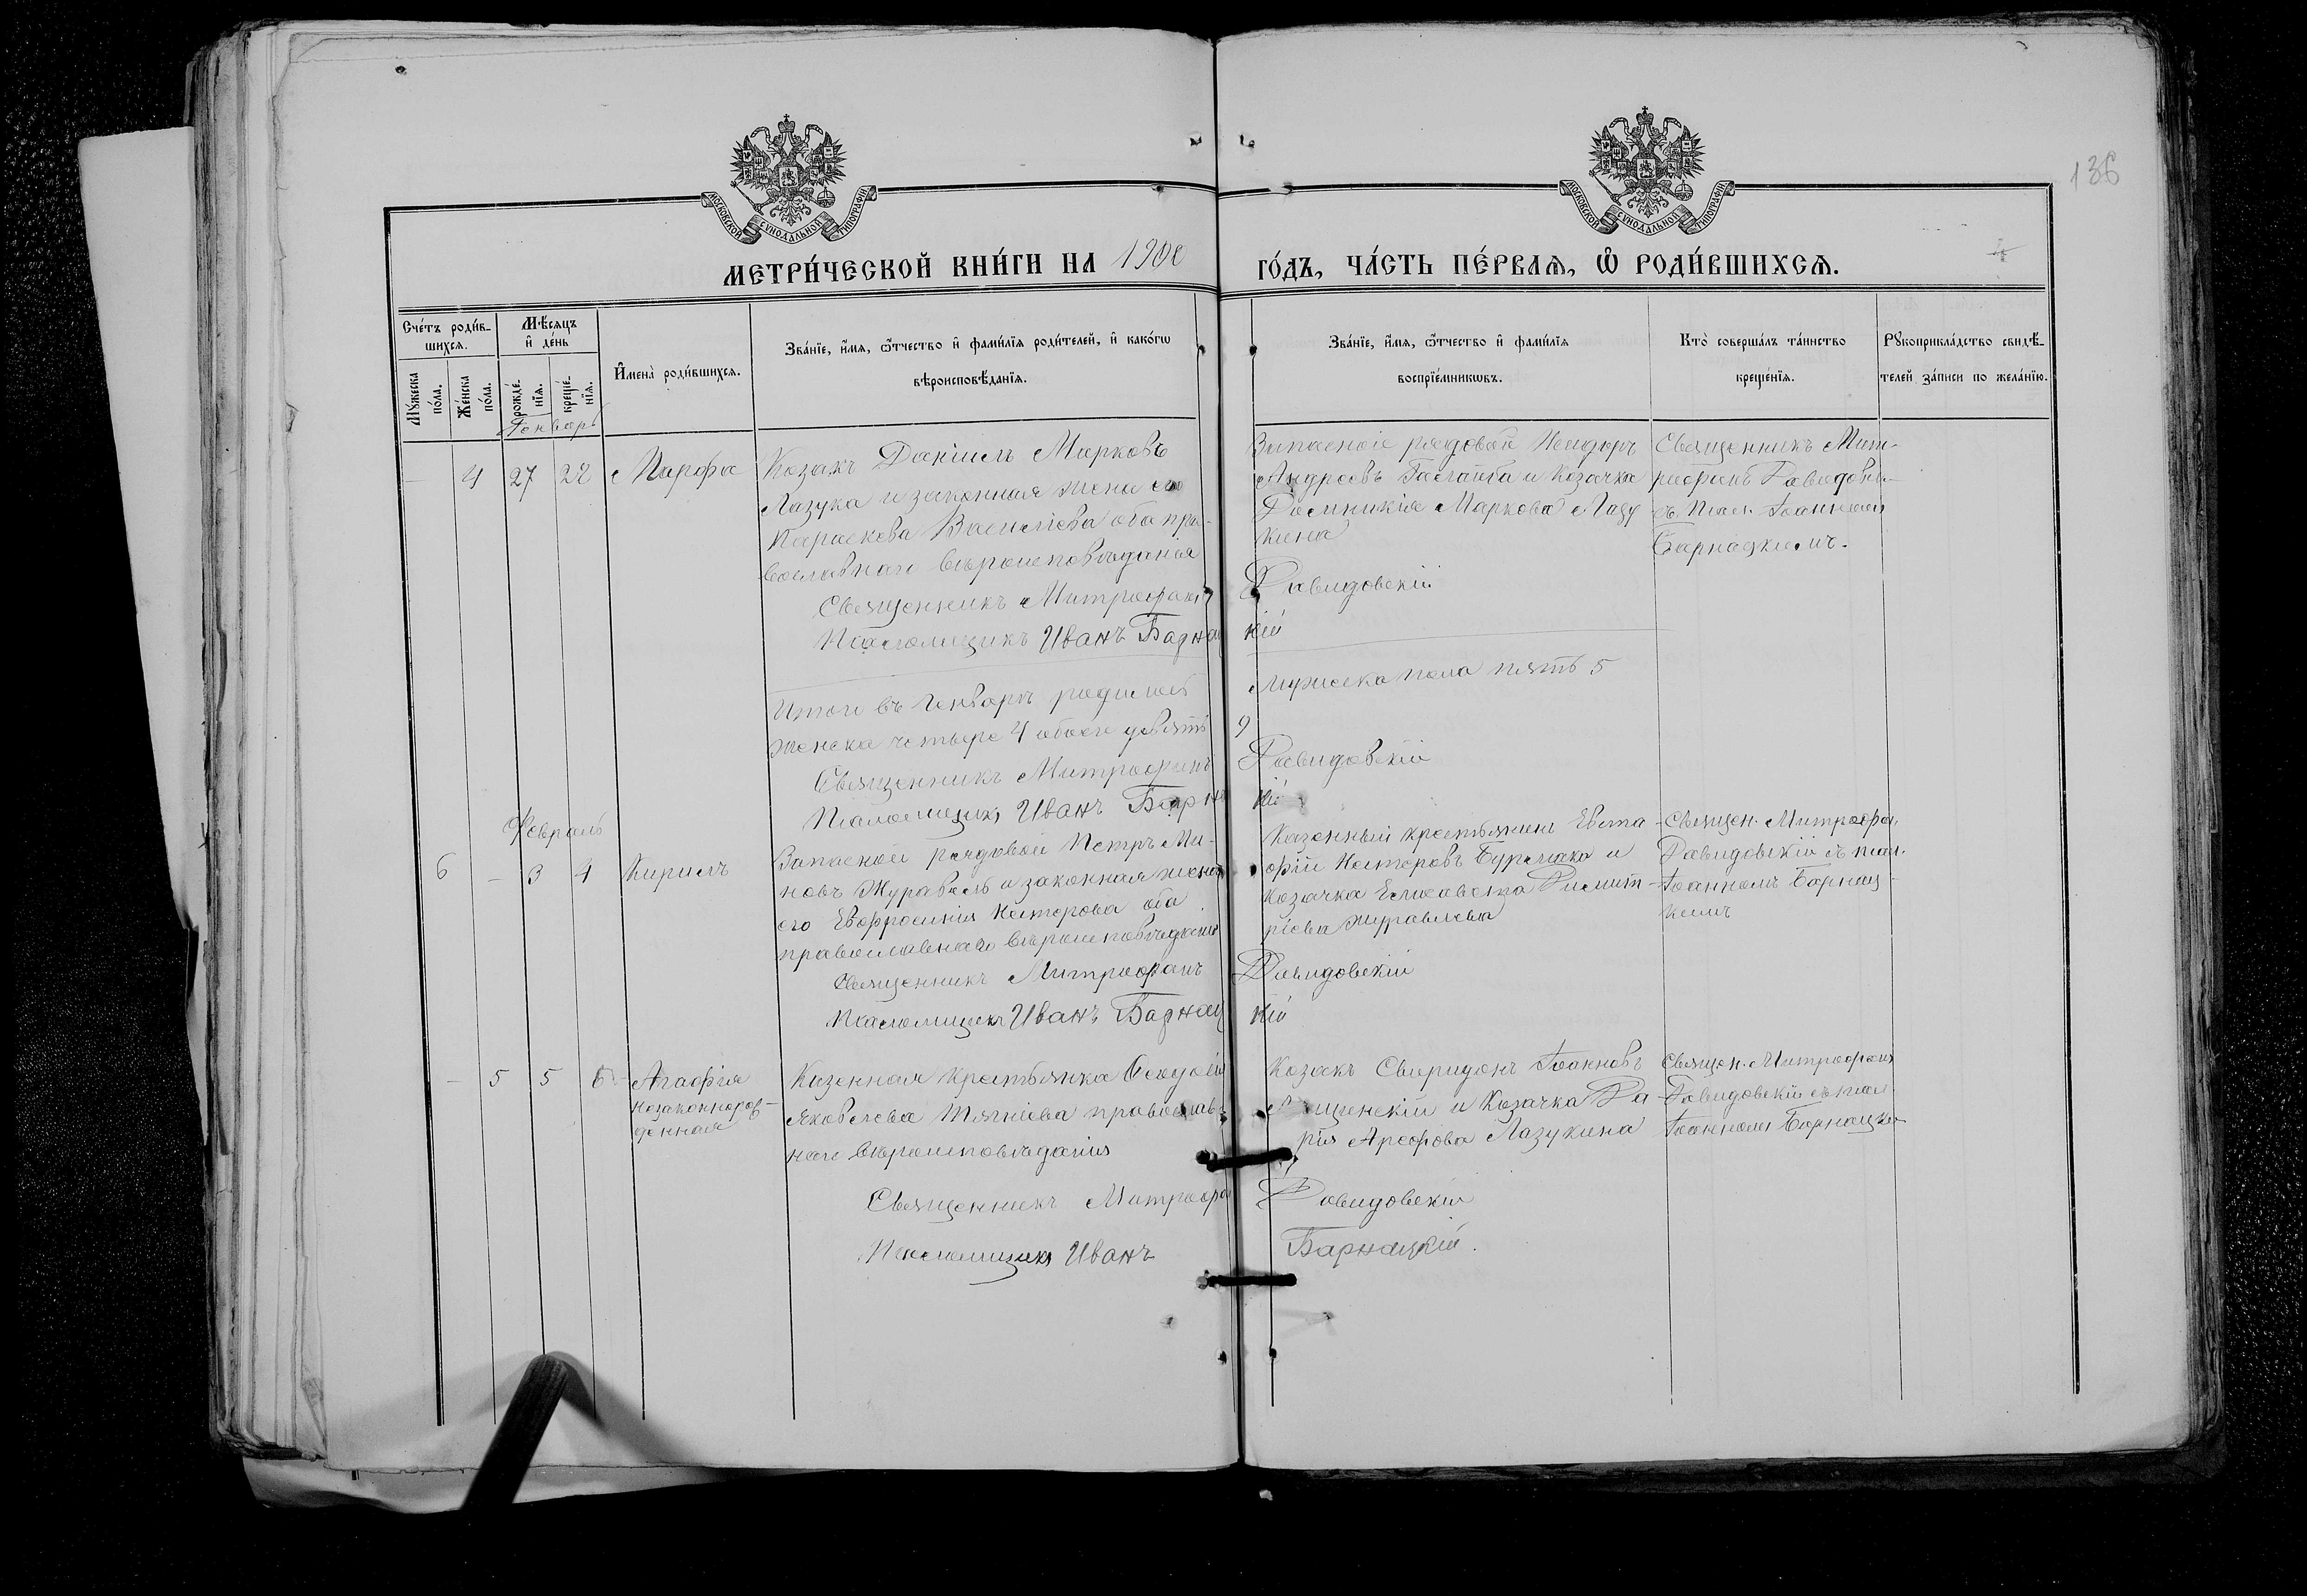 136
МОСКОВСКОЙ СѴНОДАЛЬНОЙ ТИПОГРАФІИ
МОСКОВСКОЙ СѴНОДАЛЬНОЙ ТИПОГРАФІИ
МЕТРИ́ЧЕСКОЙ КНИ́ГИ НА 1900
ГО́ДЪ, ЧА́СТЬ ПЕ́РВАѦ, Ѡ҆ РОДИ́ВШИХСѦ.
Сче́тъ роди́в-
шихсѧ.
Мѣ́сѧцъ
и҆ де́нь
Мꙋ́жеска
по́ла.
Же́нска
по́ла.
рожде́-
нїѧ.
креще́-
нїѧ.
И҆мена̀ роди́вшихсѧ.
Зва́нїе, и҆́мѧ, ѻ҆́тчество и҆ фами́лїѧ роди́телей, и҆ како́гѡ
вѣроисповѣ́данїѧ.
Зва́нїе, и҆́мѧ, ѻ҆́тчество и҆ фами́лїѧ
воспрїе́мникѡвъ.
Кто̀ соверша́лъ та́инство
креще́нїѧ.
Рꙋкоприкла́дство свидѣ́-
телей за́писи по жела́нїю.
Генварь
— 4 27 28 Марфа
Козакъ Даніилъ Марковъ
Лазука и законная жена его
Параскева Василіева оба пра-
вославнаго вѣроисповѣданія
Священникъ Митрофанъ
Псаломщикъ Иванъ Барнац
Запасной рядовой
Андреевъ и Козачка
Домникія Маркова Лазу
кина
Давидовскій
кій
Священникъ Мит-
рофанъ Давидовс-
съ псал. Іоанномъ
Барнацкимъ.
Итого въ Генварѣ родилось
женска четыре 4 обоего девять
Священникъ Митрофанъ
Псаломщикъ Иванъ Барна
мужеска пола пять 5
9
Давидовскій
кій
Февраль
6 — 3 4 Кирилъ
Запасной рядовой Петръ
новъ Журавель и законная жена
его Евфросинія Нестерова оба
православнаго вѣроисповѣданія
Священникъ Митрофанъ
Псаломщикъ Иванъ Барнац
Казенный крестьянинъ Евста-
фій Нестеровъ Бурлака и
Козачка Елисавета Димит-
ріева Журавлева
Давидовскій
кій
Священ. Митрофа.
Давидовскій съ псал.
Іоанномъ Барнац-
кимъ
— 5 5 6 Агафія
незаконнорож-
денная
Казенная крестьянка Феодосія
Яковлева православ-
наго вѣроисповѣданія
Священникъ Митрофа
Псаломщикъ Иванъ
Козакъ Свиридонъ Іоанновъ
и Козачка Да-
рія Арефова Лазукина
Давидовскій
Барнацкій.
Священ. Митрофанъ
Давидовскій съ псал
Іоанномъ Барнацки